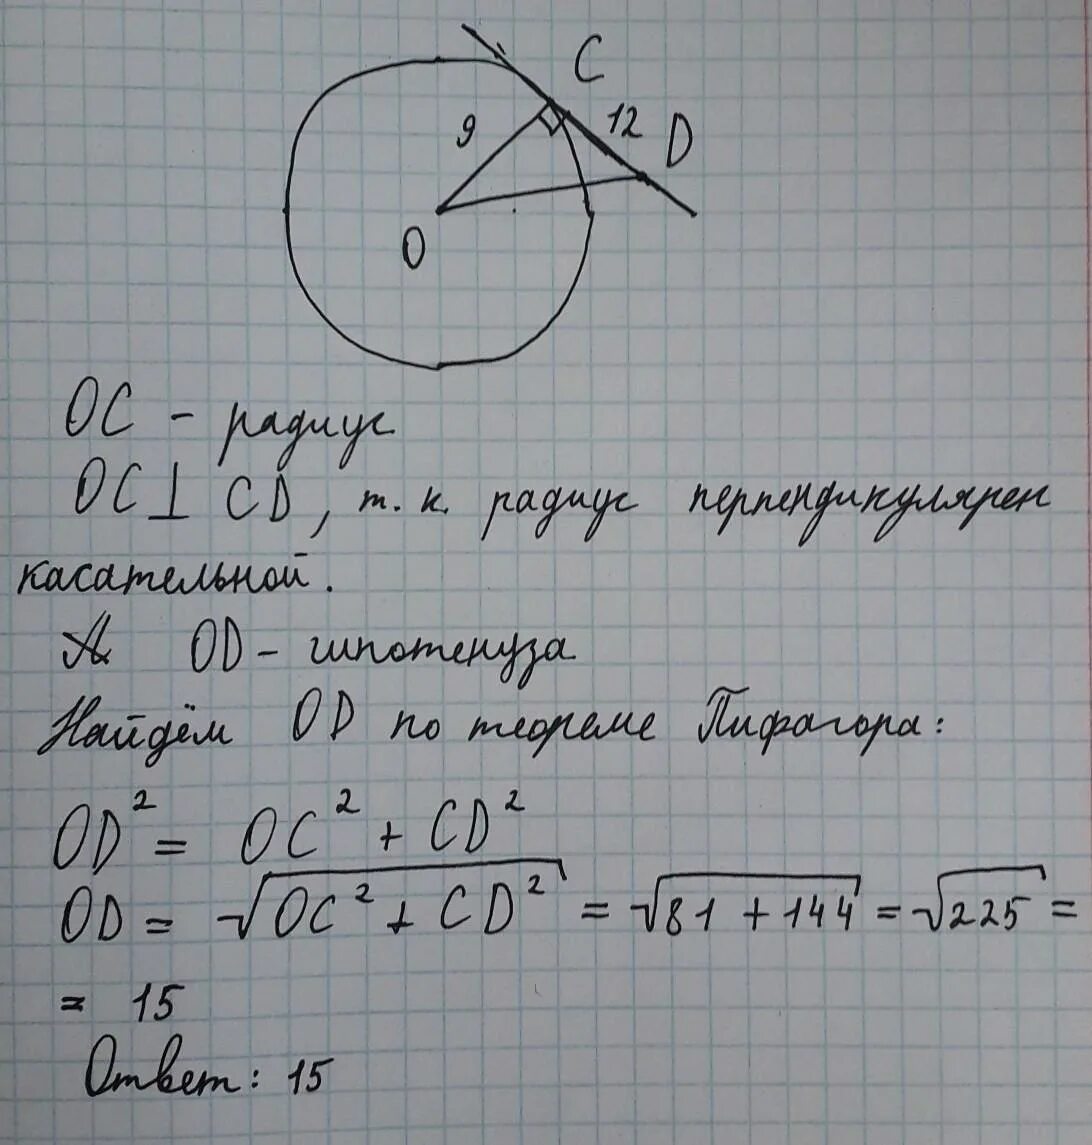 C
9
12 D
O
OC - радиус
OC ⊥ CD, т. к. радиус перпендикулярен
касательной.
OD - гипотенуза
Найдём OD по теореме Пифагора:
OD² = OC² + CD²
OD = √OC² + CD² = √81 + 144 = √225 =
= 15
Ответ: 15